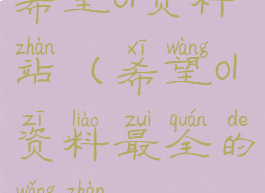 希望ol资料
zhàn xī wàng
站(希望ol
zī liào zuì quán de
资料最全的
wǎng zhàn